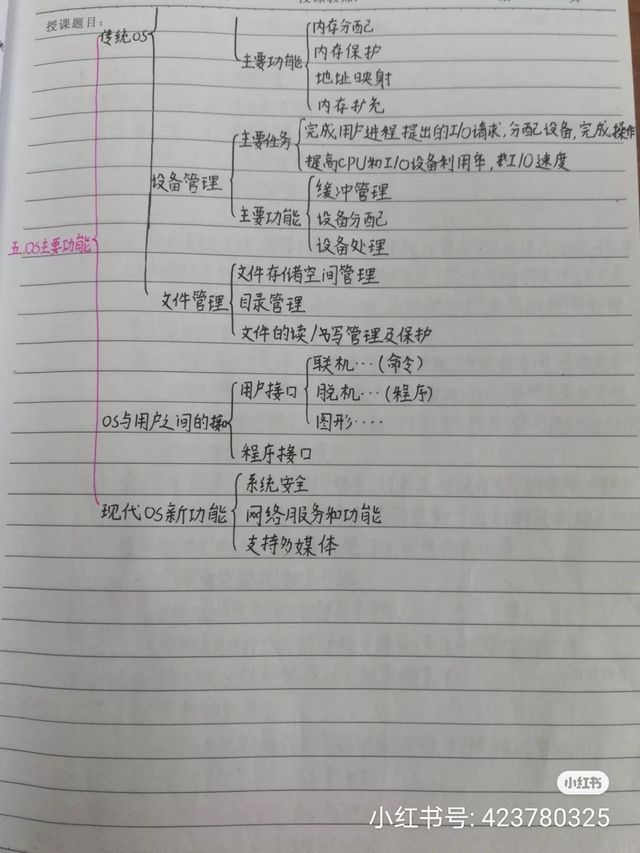 授课题目:
传统OS
主要功能
内存分配
内存保护
地址映射
内存扩充
设备管理
主要任务
完成用户进程提出的I/O请求,分配设备,完成操作
提高CPU和I/O设备利用率, I/O速度
主要功能
缓冲管理
设备分配
设备处理
五.OS主要功能
文件管理
文件存储空间管理
目录管理
文件的读/书写管理及保护
OS与用户之间的接口
用户接口
联机…(命令)
脱机…(程序)
图形….
程序接口
现代OS新功能
系统安全
网络服务和功能
支持多媒体
小红书
小红书号: 423780325